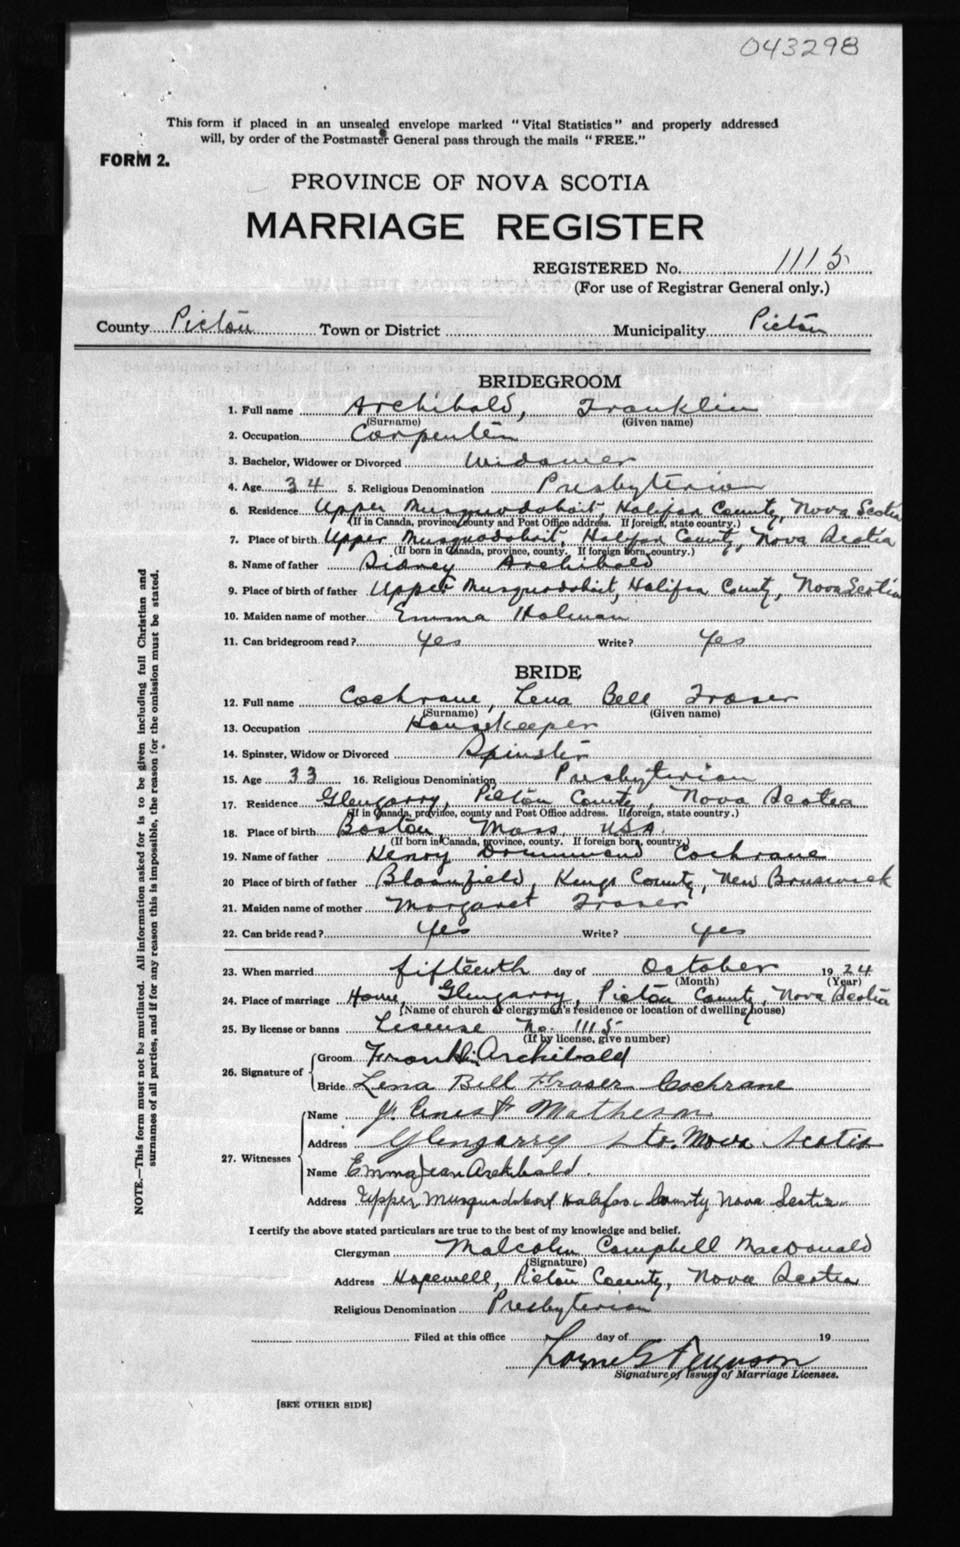 043298
This form if placed in an unsealed envelope marked "Vital Statistics" and properly addressed
will, by order of the Postmaster General pass through the mails "FREE."
FORM 2.
PROVINCE OF NOVA SCOTIA
MARRIAGE REGISTER
REGISTERED No. 1115
(For use of Registrar General only.)
County Pictou Town or District Municipality Pictou
BRIDEGROOM
1. Full name Archibald, Franklin
(Surname) (Given name)
2. Occupation Carpenter
3. Bachelor, Widower or Divorced Widower
4. Age 34 5. Religious Denomination Presbyterian
6. Residence Upper Musquodoboit, Halifax County, Nova Scotia
(If in Canada, province, county and Post Office address. If foreign, state country.)
7. Place of birth Upper Musquodoboit, Halifax County, Nova Scotia
(If born in Canada, province, county. If foreign born, country.)
8. Name of father Sidney Archibald
9. Place of birth of father Upper Musquodoboit, Halifax County, Nova Scotia
10. Maiden name of mother Emma Holman
11. Can bridegroom read? Yes Write? Yes
BRIDE
12. Full name Cochrane, Lena Bell Fraser
(Surname) (Given name)
13. Occupation Housekeeper
14. Spinster, Widow or Divorced Spinster
15. Age 33 16. Religious Denomination Presbyterian
17. Residence Glengarry, Pictou County, Nova Scotia
(If in Canada, province, county and Post Office address. If foreign, state country.)
18. Place of birth Boston, Mass. USA.
(If born in Canada, province, county. If foreign born, country.)
19. Name of father Henry Drummond Cochrane
20 Place of birth of father Bloomfield, Kings County, New Brunswick
21. Maiden name of mother Margaret Fraser
22. Can bride read? Yes Write? yes
23. When married fifteenth day of October 1924
(Month) (Year)
24. Place of marriage Home, Glengarry, Pictou County, Nova Scotia
(Name of church or clergyman's residence or location of dwelling house)
25. By license or banns License No. 1115
(If by license, give number)
26. Signature of Groom Franklin Archibald
Bride Lena Bell Fraser Cochrane
27. Witnesses Name J. Ernest Matheson
Address Glengarry Nova Scotia
Name Emma Jean Archibald.
Address Upper Musquodoboit Halifax County Nova Scotia
I certify the above stated particulars are true to the best of my knowledge and belief.
Clergyman Malcolm Campbell MacDonald
(Signature)
Address Hopewell, Pictou County, Nova Scotia
Religious Denomination Presbyterian
Filed at this office day of 19
Lorne G Ferguson
Signature of Issuer of Marriage Licenses.
[SEE OTHER SIDE]
NOTE.—This form must not be mutilated. All information asked for is to be given including full Christian and
surnames of all parties, and if for any reason this is impossible, the reason for the omission must be stated.